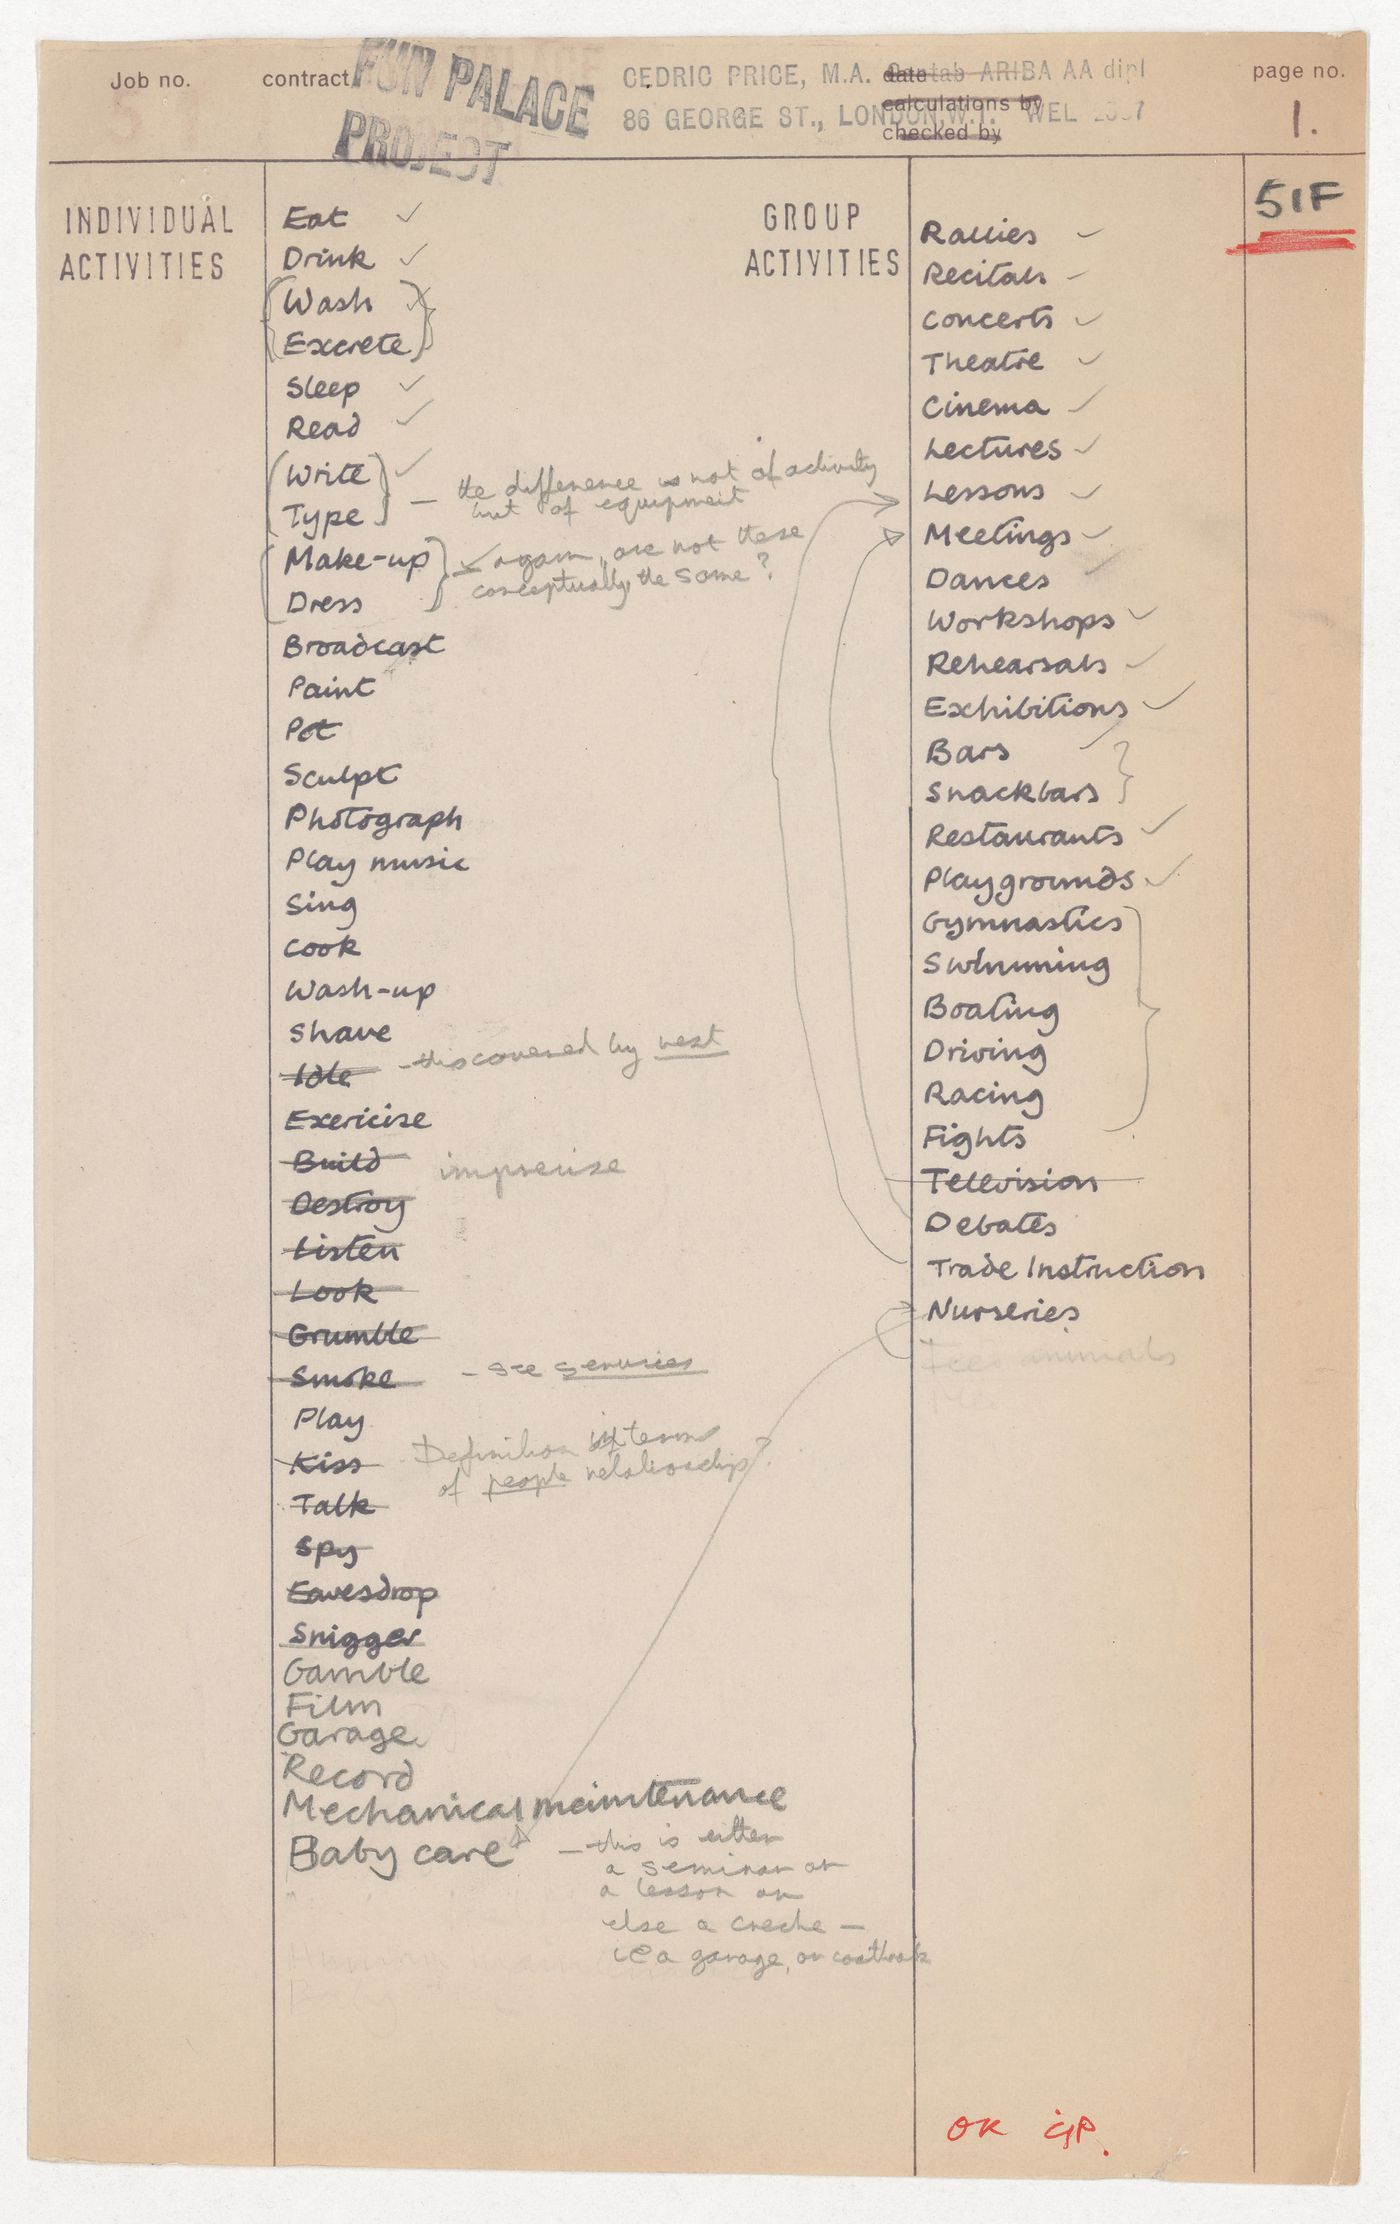 Job no.
contract
FUN PALACE
PROJECT
CEDRIC PRICE, M.A. Cantab ARIBA AA dipl
86 GEORGE ST., LONDON, W.1. WEL
date
calculations by
checked by
page no.
1.
51F
INDIVIDUAL
ACTIVITIES
Eat
Drink
Wash
Excrete
Sleep
Read
Write
Type
— the difference is not of activity
but of equipment
Make-up
Dress
again, are not these
conceptually the same?
Broadcast
Paint
Pot
Sculpt
Photograph
Play music
Sing
Cook
Wash-up
Shave
Idle
- this covered by rest
Exericise
Build
Destroy
Listen
Look
Grumble
Smoke
- see services
Play
Kiss
Definition in terms
of people relationship?
Talk
Spy
Eavesdrop
Snigger
Gamble
Film
Garage
Record
Mechanical maintenance
Baby care
— this is either
a seminar or
a lesson or
else a creche —
ie a garage, or
GROUP
ACTIVITIES
Rallies
Recitals
Concerts
Theatre
Cinema
Lectures
Lessons
Meetings
Dances
Workshops
Rehearsals
Exhibitions
Bars
Snackbars
Restaurants
Playgrounds
Gymnastics
Swimming
Boating
Driving
Racing
Fights
Television
Debates
Trade Instruction
Nurseries
animals
OK